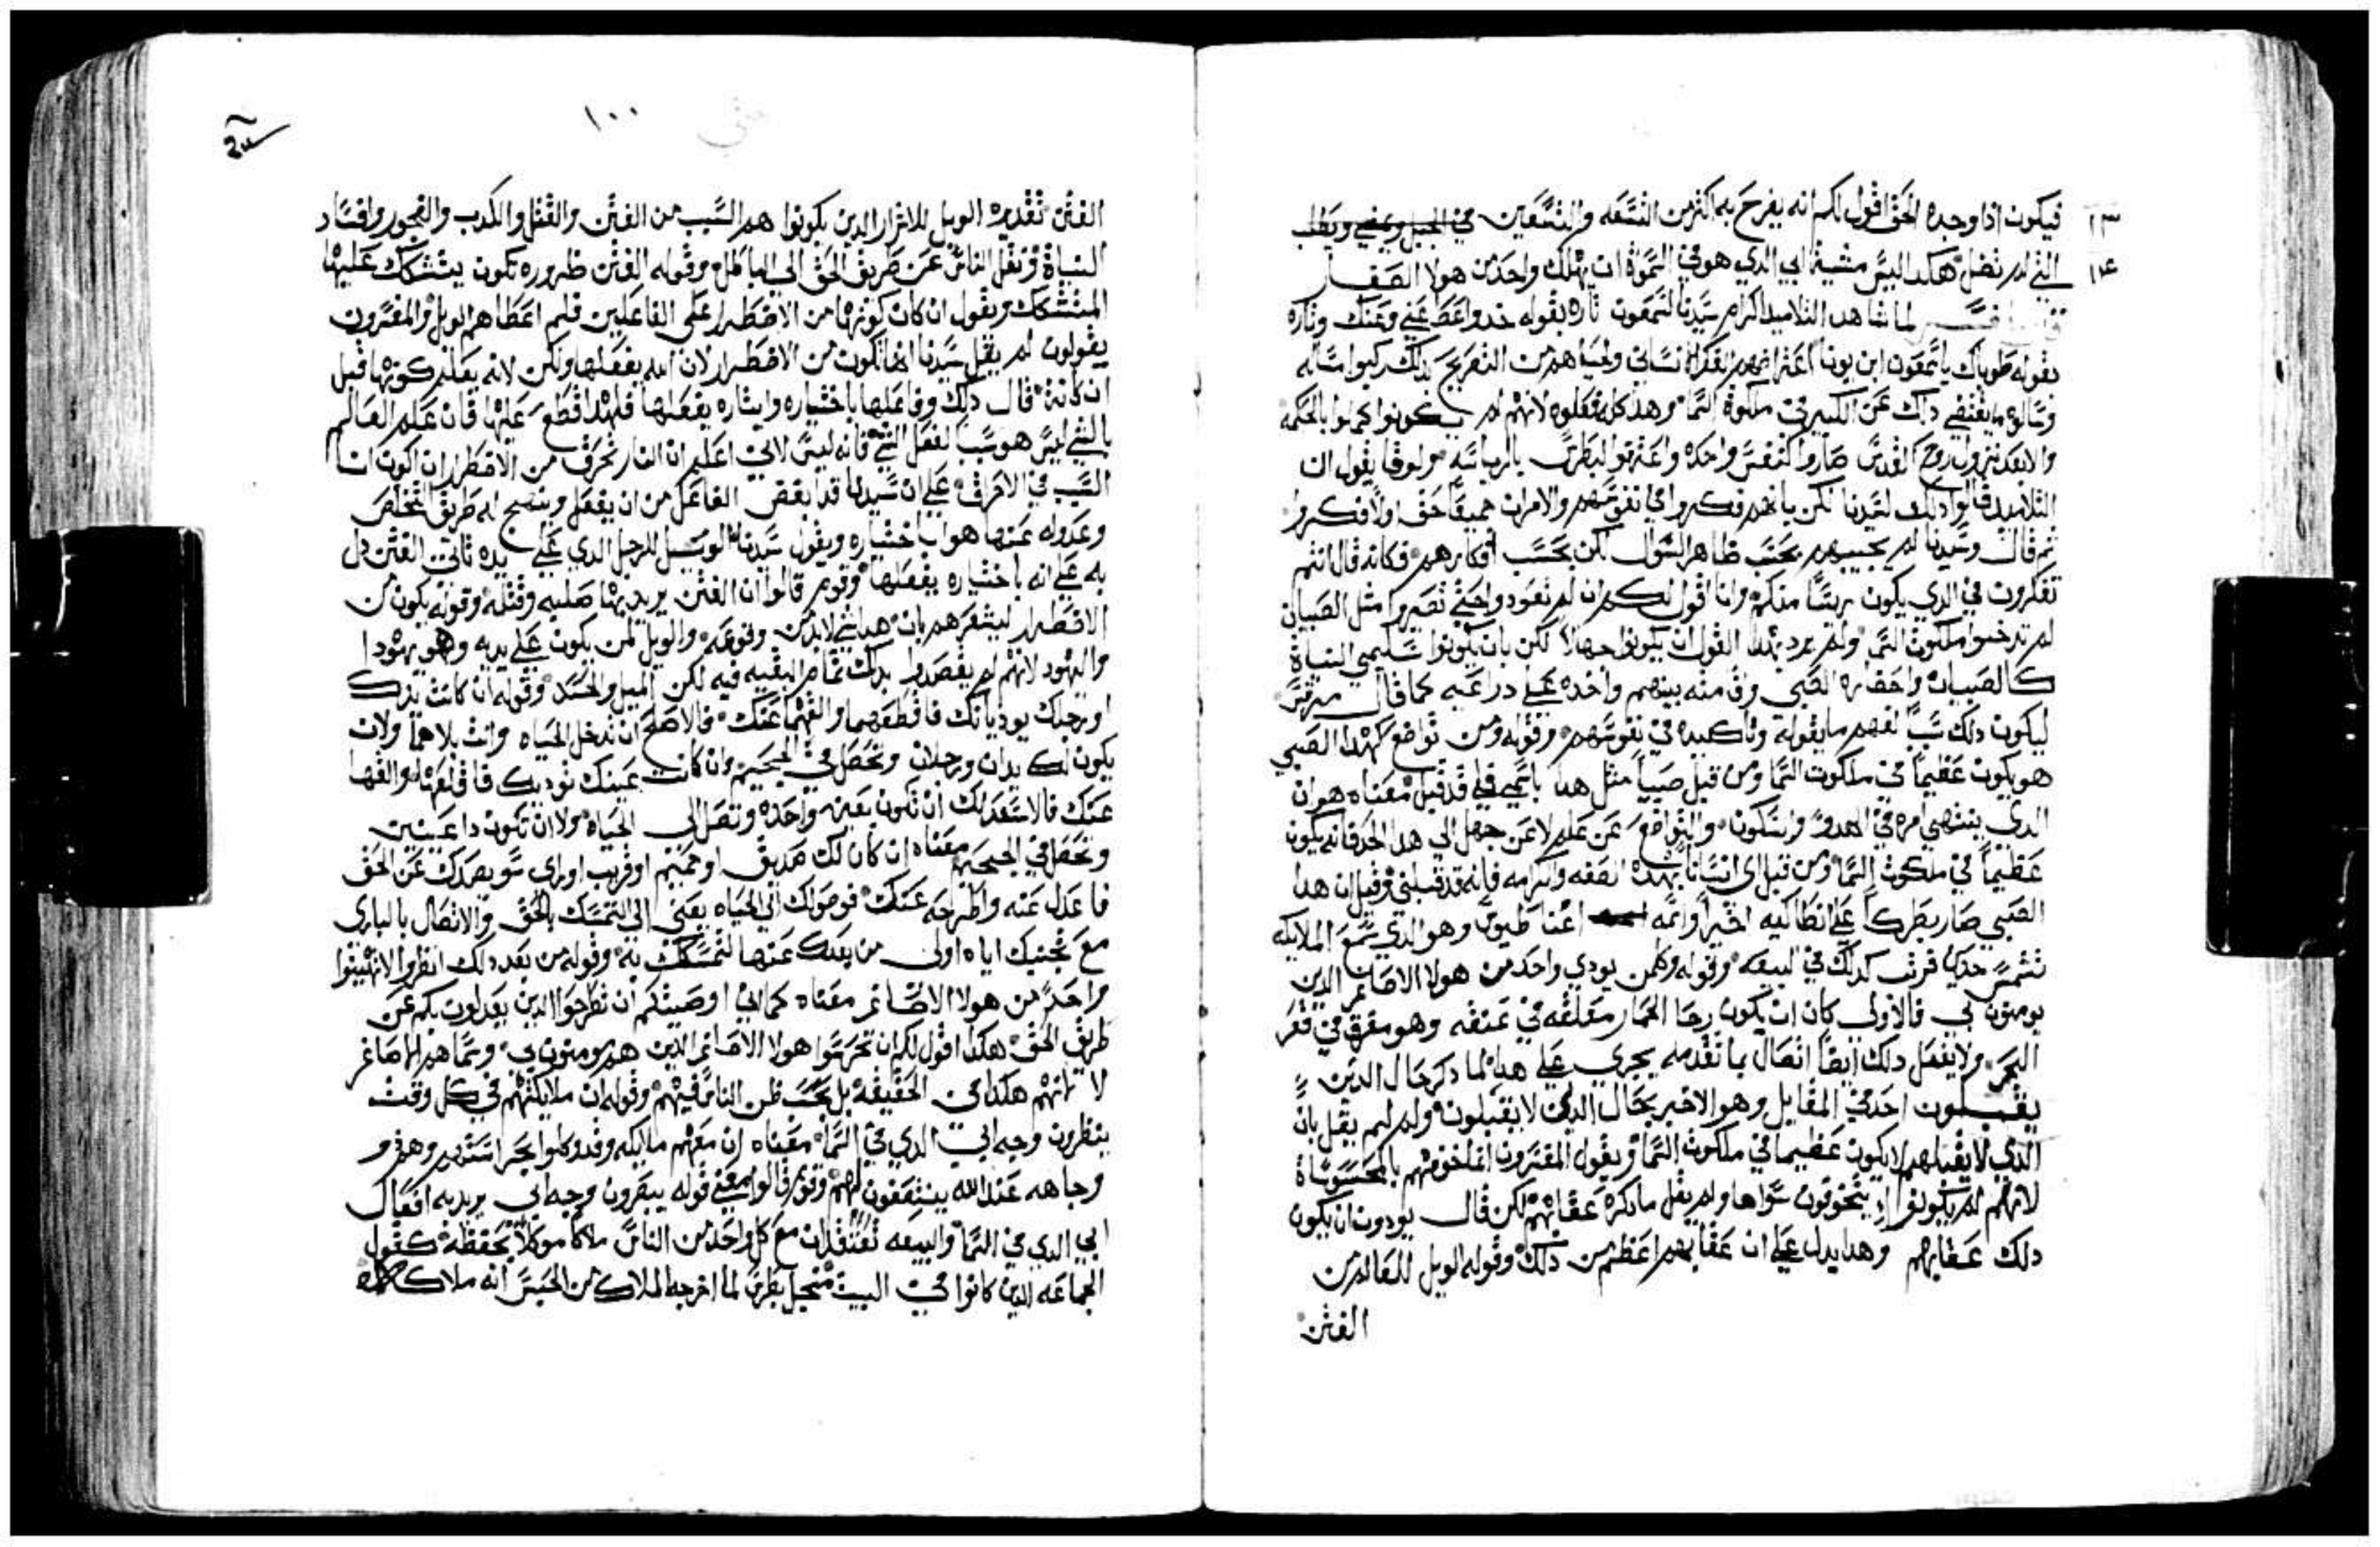 ١٣ فيكون اذا وجده الحق اقول لكم انه يفرح به اكثر من التسعه والتسعين في الجبل ويمضي ويطلب
١٤ التي لم تضل هكدا ليس مشية ابي الدي هو في السموات ان يهلك واحد من هولا الصغار
لما شاهد التلاميد اكرام سيدنا لشمعون تاره بقوله خد واعط عني وعنك وتاره
بقوله طوباك ياشمعون ابن يونا اعترضهم الفكر الانساني ولحياهم من التصريح بدلك ركبوا مساله
وسالوه ما يقتضي دلك عن الكبير في ملكوة السما وهدا كله فعلوه لانهم لم يكونوا كملوا بالحكمه
والا بعد نزول روح القدس صاروا كنفس واحده واعترفوا لبطرس بالرياسه مر لوقا يقول ان
التلاميد قالوا دلك لسيدنا لكن بانهم فكروا في نفوسهم والامران جميعا حق اولا فكروا
ثم قالوا وسيدنا لم يجيبهم بحسب ظاهر السوال لكن بحسب افكارهم فكانه قال انتم
تفكرون في الدي يكون ريسا منكم وانا اقول لكم ان لم تعودوا حتي تصيروا مثل الصبيان
لم تدخلوا ملكوت السما ولم يرد بهدا القول ان يكونوا جهالا لكن بان يكونوا سليمي النياة
كالصبيان واحضاره الصبي واقامته بينهم واخده علي دراعيه كما قال مرقس
ليكون دلك سببا لفهم ما يقوله وتاكيده في نفوسهم وقوله ومن تواضع كهدا الصبي
هو يكون عظيما في ملكوت السما ومن قبل صبيا مثل هدا باسمي فلي قد قبل معناه هو ان
الدي ينتهي امره في الهدو والسكون والتواضع عن علم لا عن جهل الي هدا الحد فانه يكون
عظيما في ملكوت السما ومن قبل اي انسانا بهده الصفه واكرامه فانه قد قبلني وقيل ان هدا
الصبي صار بطركا علي انطاكيه اخيرا واسمه اغناطيوس وهو الدي سمع الملايكه
فرتب كدلك في البيعه وقوله وكلمن يودي واحد من هولا الاصاغر الدين
يومنون بي فالاولي كان ان يكون رحا الحمار معلقه في عنقه وهو مغرق في قعر
البحر ولا يفعل دلك ايضا اتصال بما تقدمه يجري علي هدا لما دكر حال الدين
يقبلون اخد في المقابل وهو الاخبر بحال الدين لا يقبلون ولم لم يقل بان
الدي لا يقبلهم لا يكون عظيما في ملكوت السما ويقول المفسرون انما خوفهم بالمحسوساة
لانهم لم يكونوا يتخوفون سواها ولم يقل ما دكره عقابهم لكن قال يودون ان يكون
دلك عقابهم وهدا يدل علي ان عقابهم اعظم من دلك وقوله الويل للعالم من
الفتن
١٠٠
متي
الفتن تقديره الويل للاشرار الدين يكونوا هم السبب من الفتن والقتل والكدب والفجور وافساد
النياة ونقل الناس عن طريق الحق الي الباطل وقوله الفتن ضروره تكون يتشكك عليها
المتشكك ويقول ان كان كونها من الاضطرار علي الفاعلين فلم اعطاهم الويل والمفسرون
يقولون لم يقل سيدنا انها تكون من الاضطرار لان الله يفعلها ولكن لانه يعلم كونها قبل
ان كاينه قال دلك وفاعلها باختياره وايثاره يفعلها فلهدا قطع عليها فان علم العالم
بالشي ليس هو سببا لفعل الشي فانه ليس لاني اعلم ان النار تحرق من الاضطرار ان اكون انا
السبب في الاحراق علي ان سيدنا قد ابغض الفاعل من ان يفعل وينهج له طريق التخلص
وعدوله عنها هو باختياره ويقول سيدنا الويل للرجل الدي علي يده تاتي الفتن دل
به علي انه باختياره يفعلها وقوم قالوا ان الفتن يريد بها صلبه وقتله وقوله يكون من
الاضطرار ليشعرهم بان هدا شي لابد من وقوعه والويل لمن يكون علي يديه وهو يهودا
واليهود لانهم لم يقصدوا بدلك تمام البغيه فيه لكن الميل والحسد وقوله ان كانت يدك
او رجلك يوديانك فاقطعهما والقهما عنك فالاصلح ان تدخل الحياه وانت بلاهما ولان
يكون لك يدان ورجلان وتحصل في الجحيم وان كانت عينك توديك فاقلعها والقها
عنك فالاسعد لك ان تكون بعين واحده وتصل الي الحياه ولا ان تكون دا عينين
وتحصل في الجحيم معناه ان كان لك صديق او حميم او قريب او راي سو يصدك عن الحق
فاعدل عنه واطرحه عنك فوصولك الي الحياه يعني الي التمسك بالحق والاتصال بالباري
مع تجنبك اياه اولي من بعدك عنها لتمسكك به وقوله من بعد دلك انظروا لا تهينوا
واحد من هولا الاصاغر معناه كما اني اوصيتكم ان تطرحوا الدين يعدلون بكم عن
طريق الحق هكدا اقول لكم ان تحرسوا هولا الاصاغر الدين هم يومنون بي وسماهم الاصاغر
لا لانهم هكدا في الحقيقه بل بحسب ظن الناس فيهم وقوله ان ملايكتهم في كل وقت
ينظرون وجه ابي الدي في السما معناه ان معهم ملايكه وقد وكلوا بحراستهم وهم دو
وجاهه عند الله يشفعون لهم وقوم قالوا معني قوله يبصرون وجه ابي يريد به افعال
ابي الدي في السما والبيعه تعتقد ان مع كل واحد من الناس ملاكا موكلا بحفظه كقول
الجماعه الدين كانوا في البيت من اجل بطرس لما اخرجه الملاك من الحبس انه ملاكه